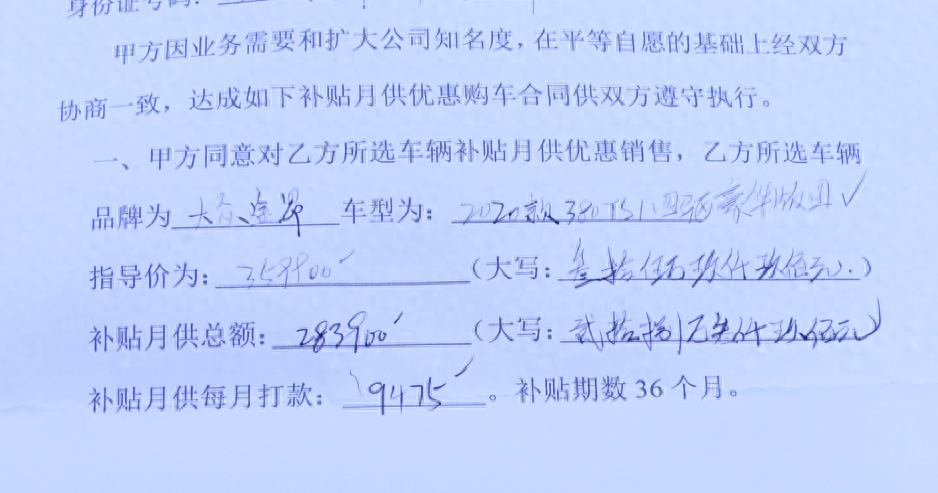 身份证号码：
甲方因业务需要和扩大公司知名度，在平等自愿的基础上经双方
协商一致，达成如下补贴月供优惠购车合同供双方遵守执行。
一、甲方同意对乙方所选车辆补贴月供优惠销售，乙方所选车辆
品牌为 大众途昂 车型为： 2020款380TSI 四驱豪华版 ✓
指导价为： 359900 （大写： 叁拾伍万玖仟玖佰元 ）
补贴月供总额： 283900 （大写： 贰拾捌万 仟玖佰元）
补贴月供每月打款： 9475 。补贴期数 36 个月。